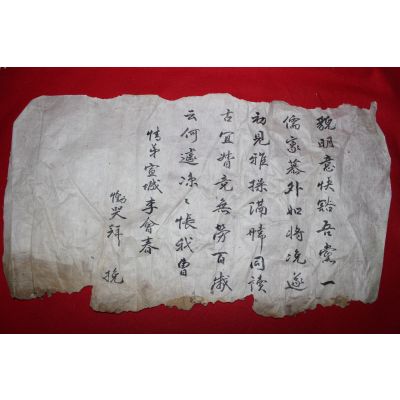 貌明意快吾黨一
儒家慕外如將浼遂
初見雅操滿幃同讀
古宜皆竟無勞百歲
云何遽凉〻悵我曹
情弟宣城李會春
慟哭拜 挽